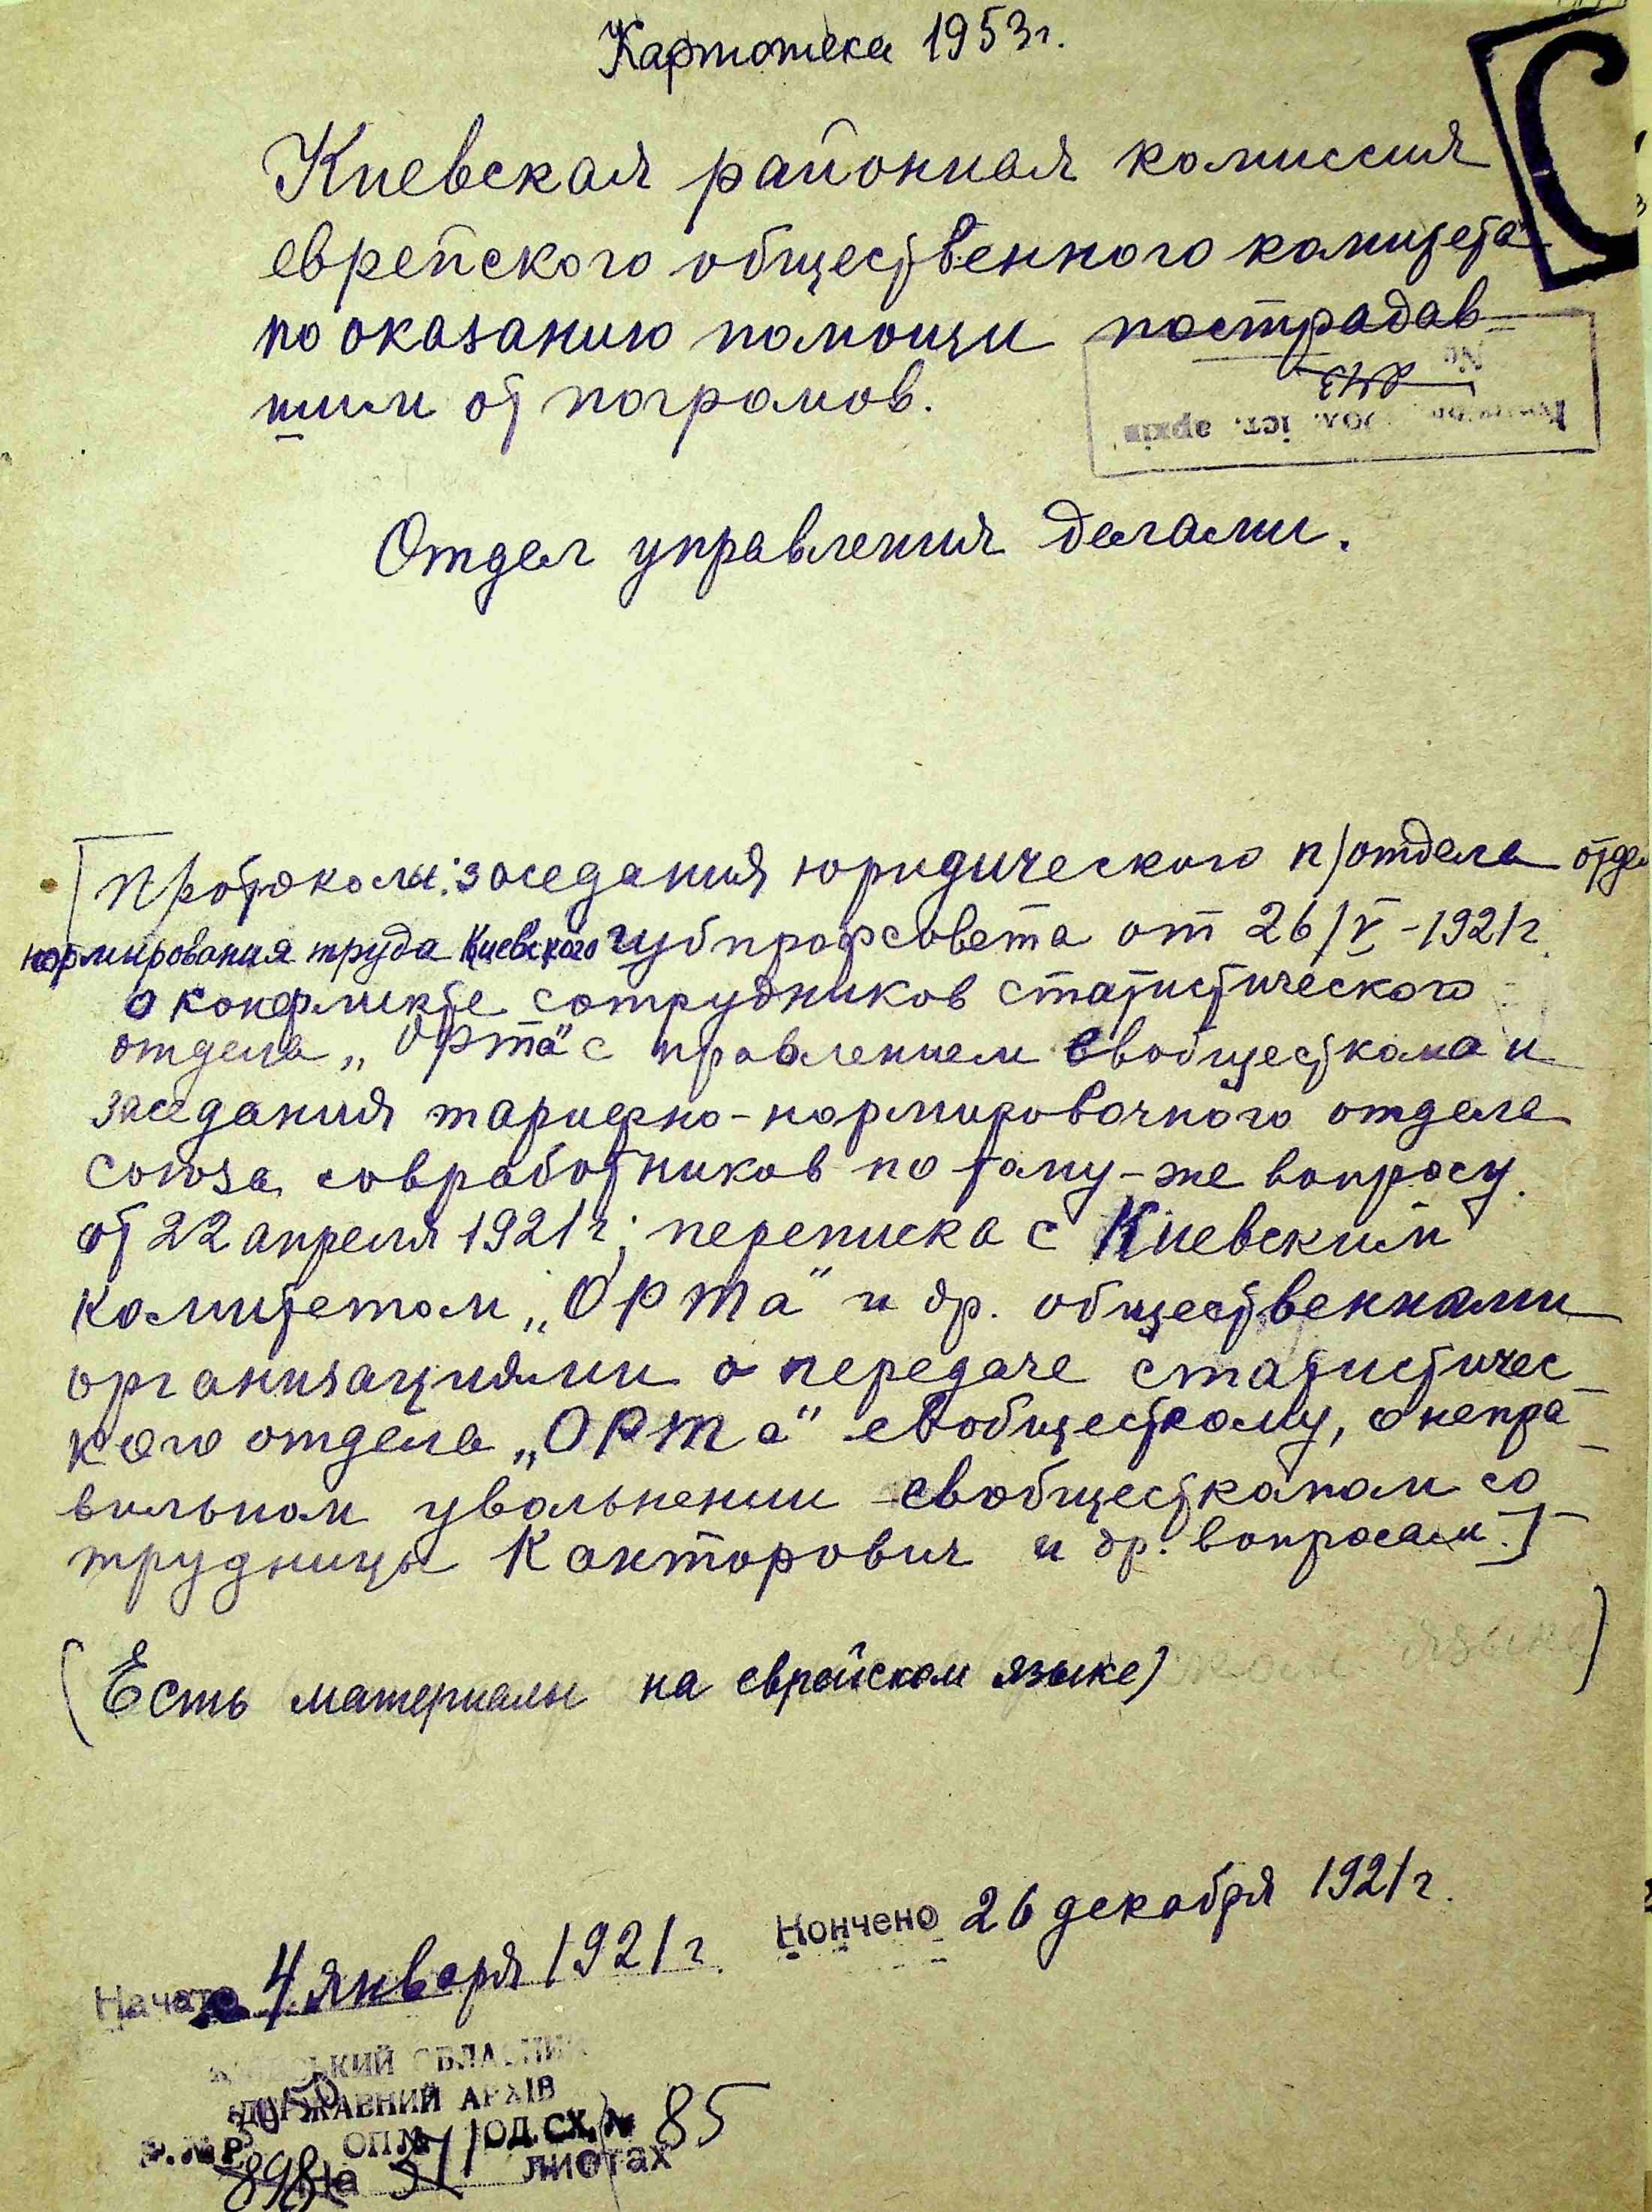 Картотека 1953г.
Киевская районная комиссия
еврейского общественного комитета
по оказанию помощи пострадав-
шим от погромов.
№
іст. архів
Отдел управления делами.
[Протоколы: заседания юридического п/отдела отдела
нормирования труда Киевского губпрофсовета от 26/V-1921г.
о конфликте сотрудников статистического
отдела „ОРТа" с правлением Евобщесткома и
заседания тарифно-нормировочного отдела
союза совработников по тому-же вопросу
от 22 апреля 1921г; переписка с Киевским
комитетом „ОРТа" и др. общественными
организациями о передаче статистичес-
кого отдела „ОРТа" Евобщесткому, о непра-
вильном увольнении Евобщесткомом со-
трудницы Канторович и др. вопросам.]
(Есть материалы на еврейском языке)
Кончено 26 декабря 1921г.
Начато 4 января 1921г.
КИЇВСЬКИЙ ОБЛАСНИЙ
ДЕРЖАВНИЙ АРХІВ
Ф. № Р. ОП № 1 ОД. СХ. № 85
898 На листах